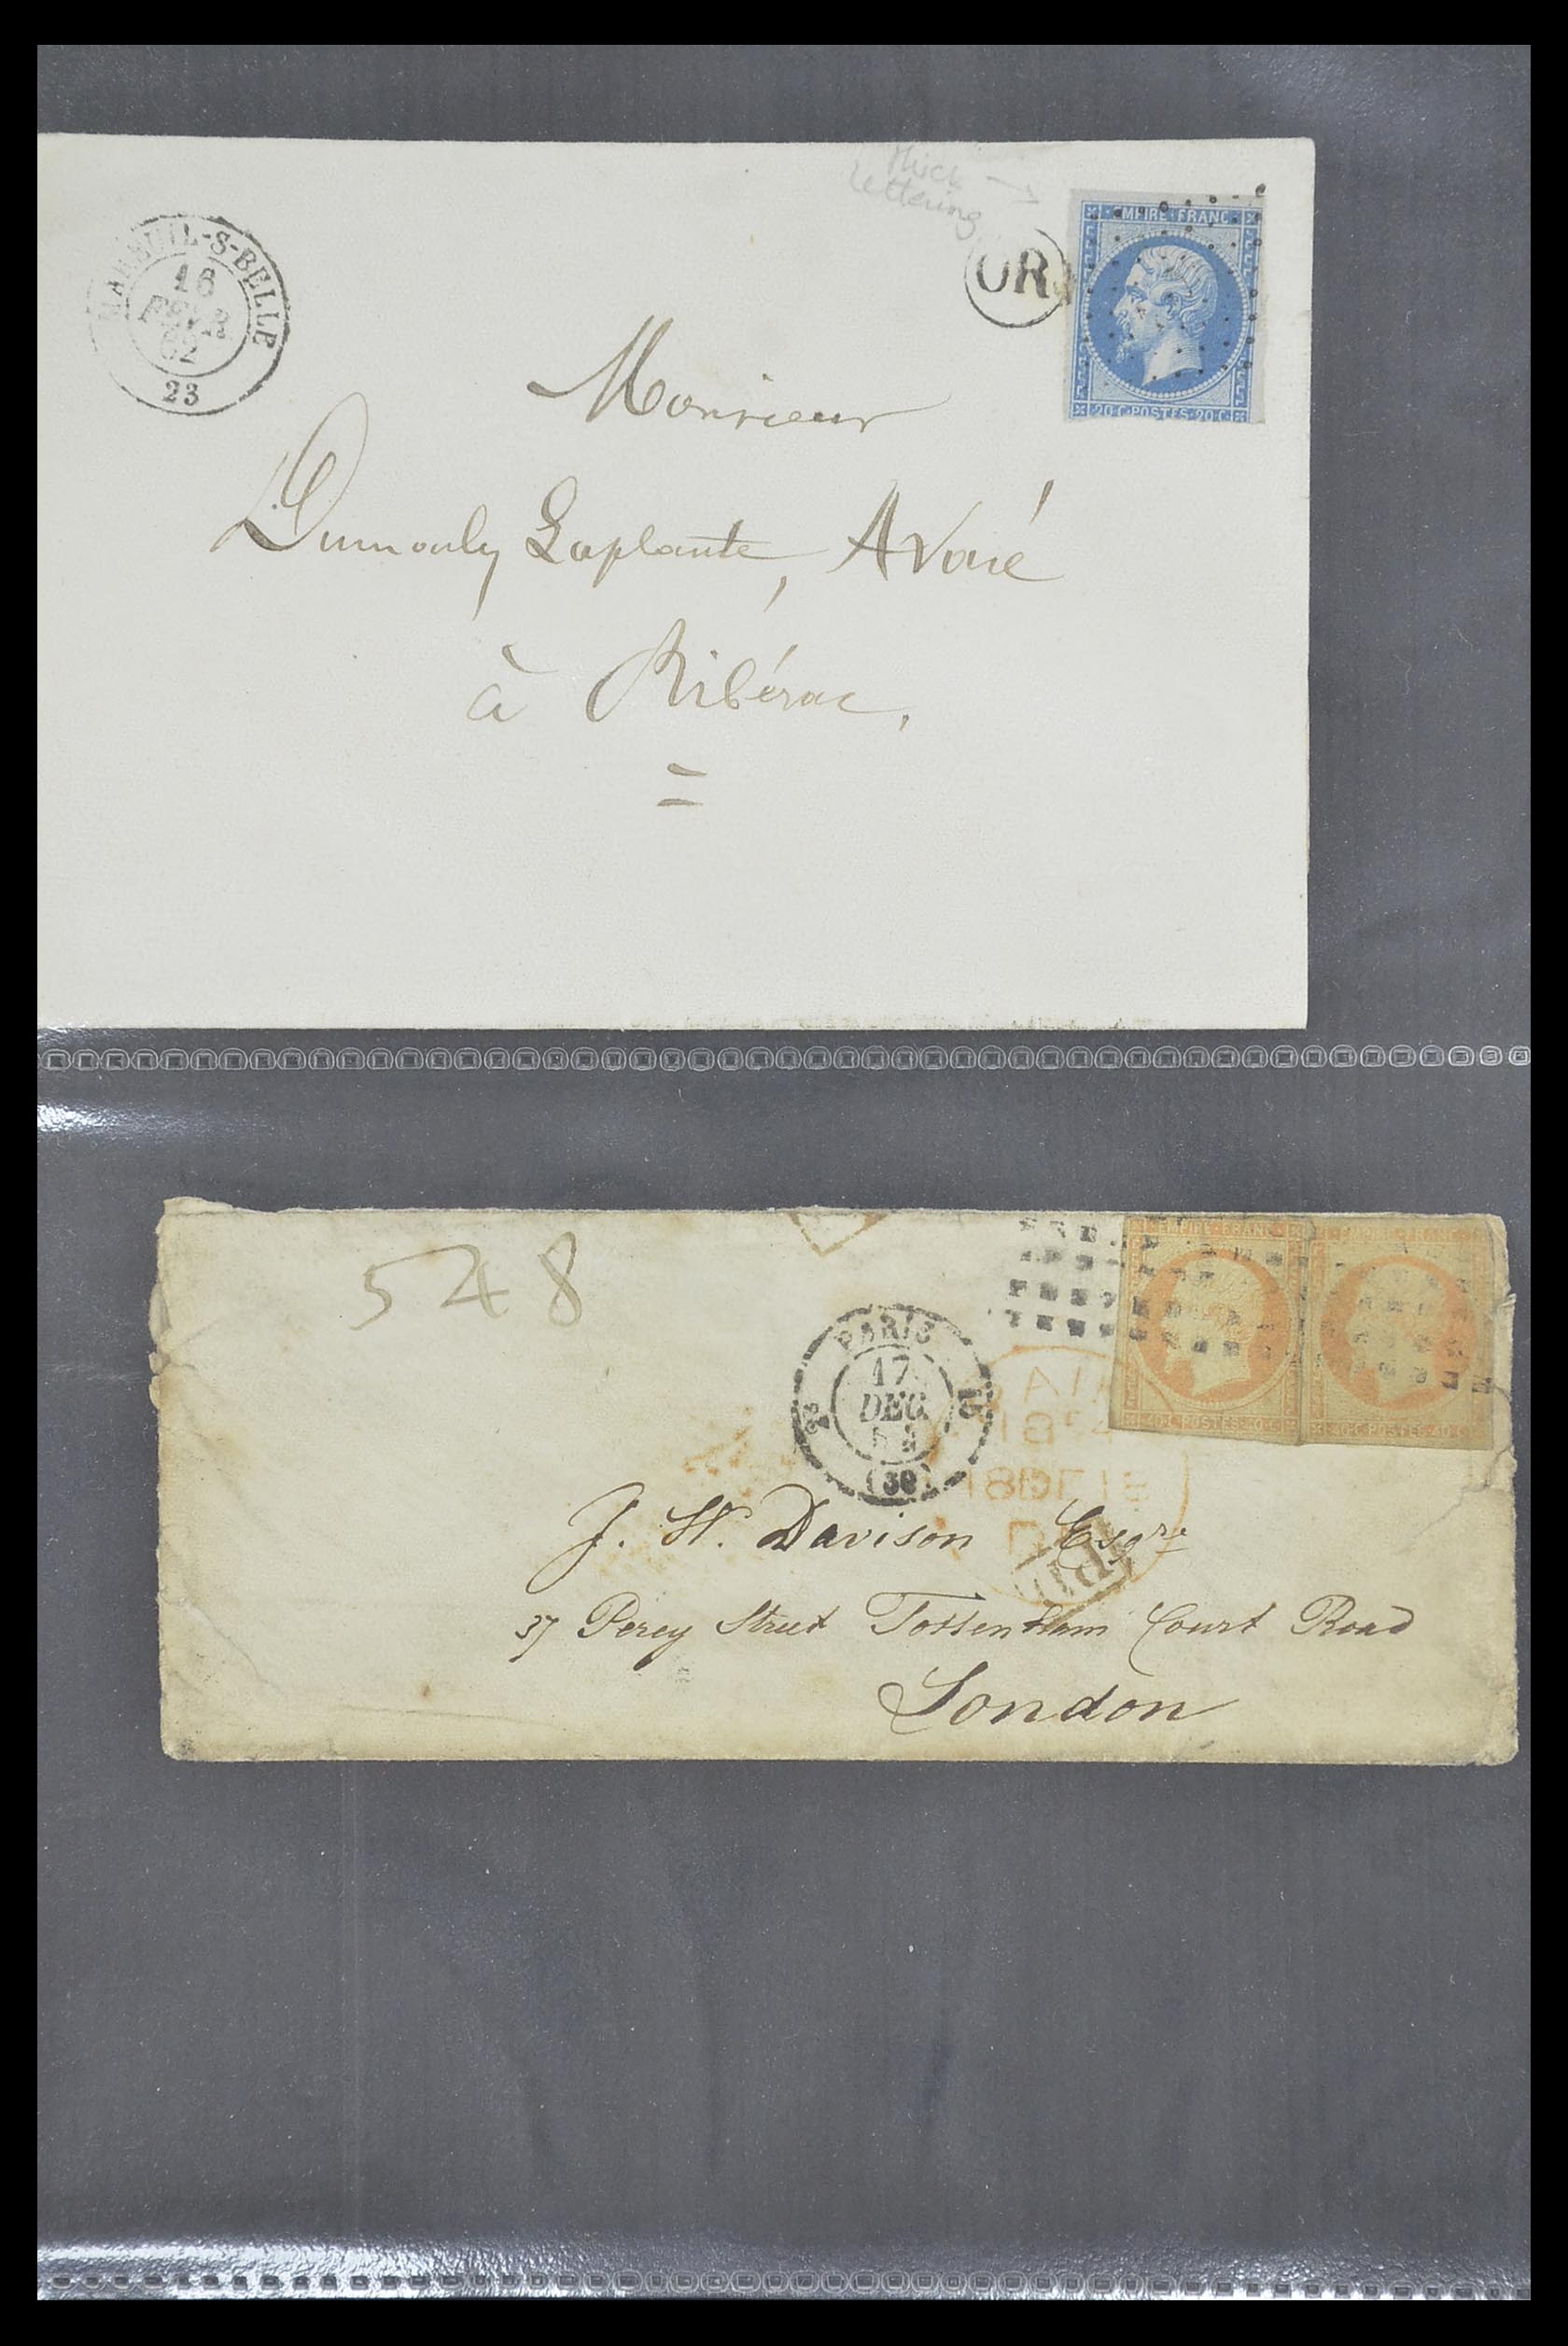 thick
lettering
OR
EMPIRE·FRANC
20·C·POSTES·20·C
MAREUIL-S-BELLE
16
62
23
Monsieur
Dumouly Laplante, Avoué
à Ribérac.
548
EMPIRE·FRANC
40·C·POSTES·40·C
EMPIRE·FRANC
40·C·POSTES·40·C
PARIS
17
DEC.
(30)
J. W. Davison Esqre
37 Percy Street Tottenham Court Road
London